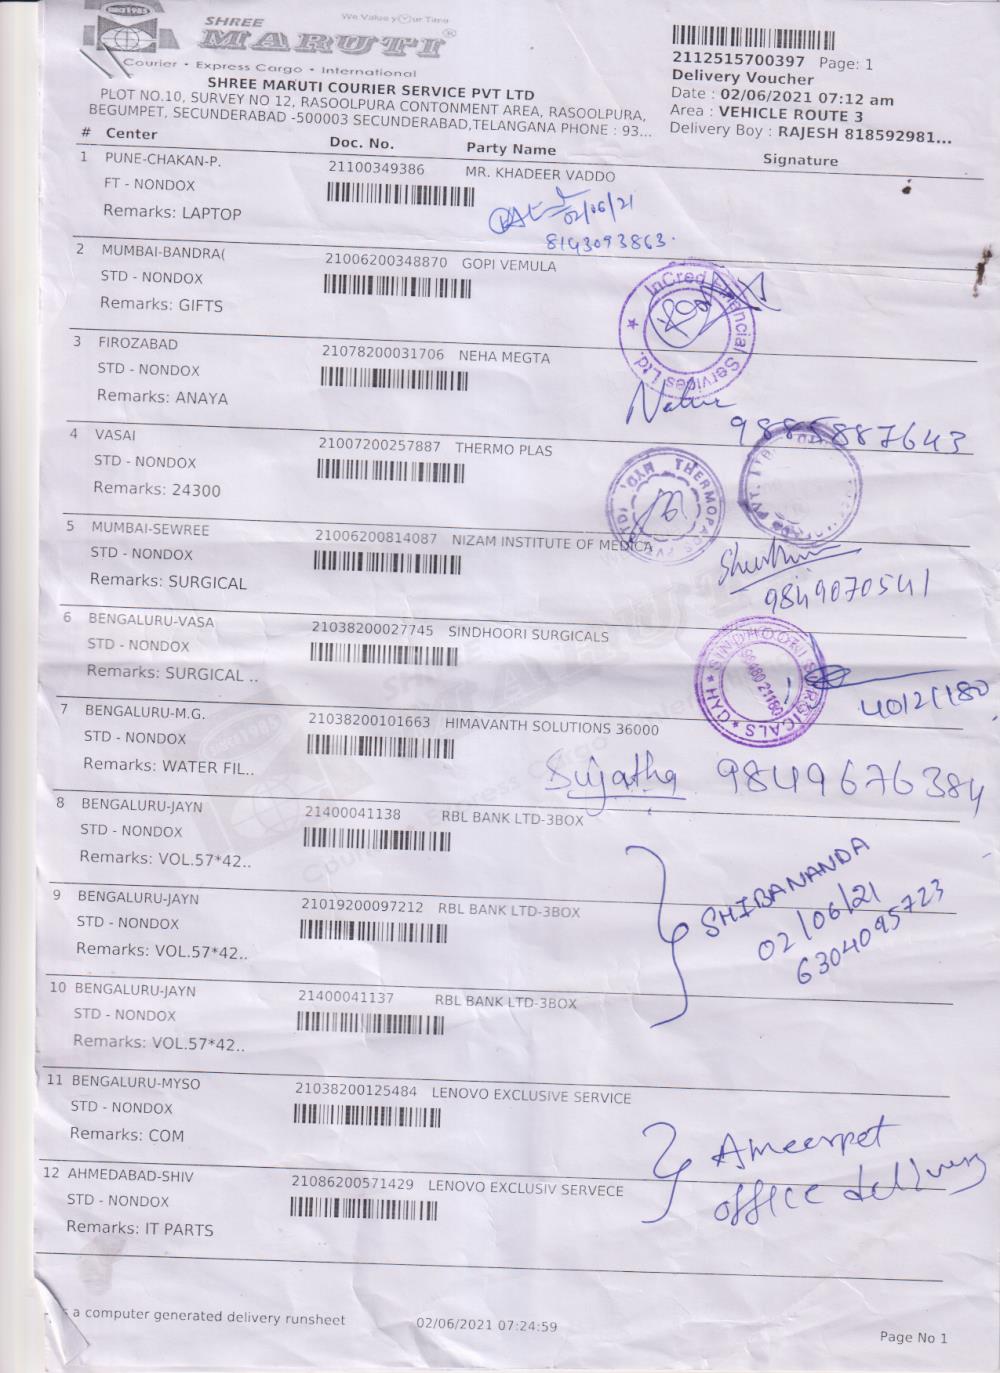 SINCE1985
We Value yOur Time
SHREE
MARUTI®
Courier • Express Cargo • International
SHREE MARUTI COURIER SERVICE PVT LTD
PLOT NO.10, SURVEY NO 12, RASOOLPURA CONTONMENT AREA, RASOOLPURA,
BEGUMPET, SECUNDERABAD -500003 SECUNDERABAD,TELANGANA PHONE : 93...
2112515700397 Page: 1
Delivery Voucher
Date : 02/06/2021 07:12 am
Area : VEHICLE ROUTE 3
Delivery Boy : RAJESH 818592981...
# Center Doc. No. Party Name Signature
1 PUNE-CHAKAN-P. 21100349386 MR. KHADEER VADDO
FT - NONDOX
Remarks: LAPTOP
02/06/21
8143093863.
2 MUMBAI-BANDRA( 21006200348870 GOPI VEMULA
STD - NONDOX
Remarks: GIFTS
InCred Financial Services Ltd.
3 FIROZABAD 21078200031706 NEHA MEGTA
STD - NONDOX
Remarks: ANAYA
9885887643
4 VASAI 21007200257887 THERMO PLAS
STD - NONDOX
Remarks: 24300
5 MUMBAI-SEWREE 21006200814087 NIZAM INSTITUTE OF MEDICA
STD - NONDOX
Remarks: SURGICAL
9849070541
6 BENGALURU-VASA 21038200027745 SINDHOORI SURGICALS
STD - NONDOX
Remarks: SURGICAL ..
SINDHOORI SURGICALS ★ HYD ★
40121180
7 BENGALURU-M.G. 21038200101663 HIMAVANTH SOLUTIONS 36000
STD - NONDOX
Remarks: WATER FIL..
Sujatha 9849676384
8 BENGALURU-JAYN 21400041138 RBL BANK LTD-3BOX
STD - NONDOX
Remarks: VOL.57*42..
9 BENGALURU-JAYN 21019200097212 RBL BANK LTD-3BOX
STD - NONDOX
Remarks: VOL.57*42..
SHIBANANDA
02/06/21
6304095723
10 BENGALURU-JAYN 21400041137 RBL BANK LTD-3BOX
STD - NONDOX
Remarks: VOL.57*42..
11 BENGALURU-MYSO 21038200125484 LENOVO EXCLUSIVE SERVICE
STD - NONDOX
Remarks: COM
Ameerpet
office delivery
12 AHMEDABAD-SHIV 21086200571429 LENOVO EXCLUSIV SERVECE
STD - NONDOX
Remarks: IT PARTS
a computer generated delivery runsheet 02/06/2021 07:24:59 Page No 1